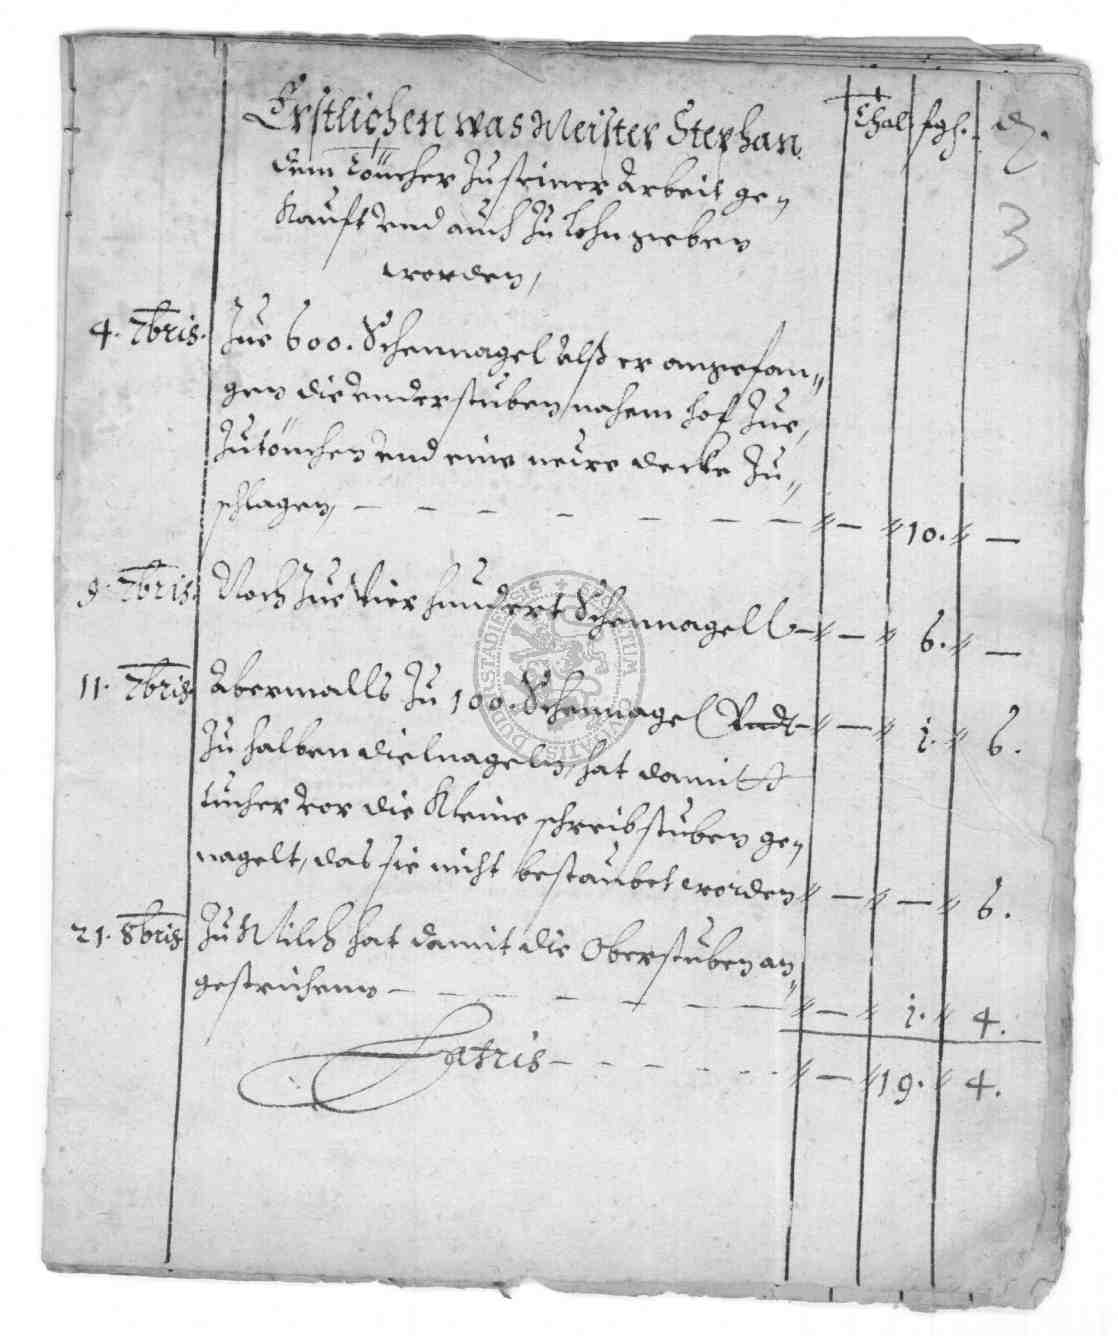 Thal. sgh. d.
Erstlichen was Meister Stephan
dem Töncher Zu seiner Arbeit ge„
Kaufft vnd auch Zu Lohn geben
worden,
3
4. 7bris. Zue 600. Schennagel Alß er angefan„
gen die vnderstuben nahem hof Zue,
Zu tönchen vnd eine neuwe decke Zu„
schlagen, — — — — — — — „ — „ 10. „ —
9. 7bris. Noch Zue Vier hundert Schennagell — „ — „ 6. „ —
11. 7bris. Abermalls Zu 100. Schennagel Vndt — „ — „ 1. „ 6.
Zu halben dielnageln, hat damitt
tücher vor die Kleine schreibstuben ge„
nagelt, das sie nicht bestaubet worden „ — „ — „ 6.
21. 8bris. Zu Milch hat damit die Oberstuben an„
gestrichenn — — — — — „ — „ 1. „ 4.
Latris — — — — — „ — „ 19. „ 4.